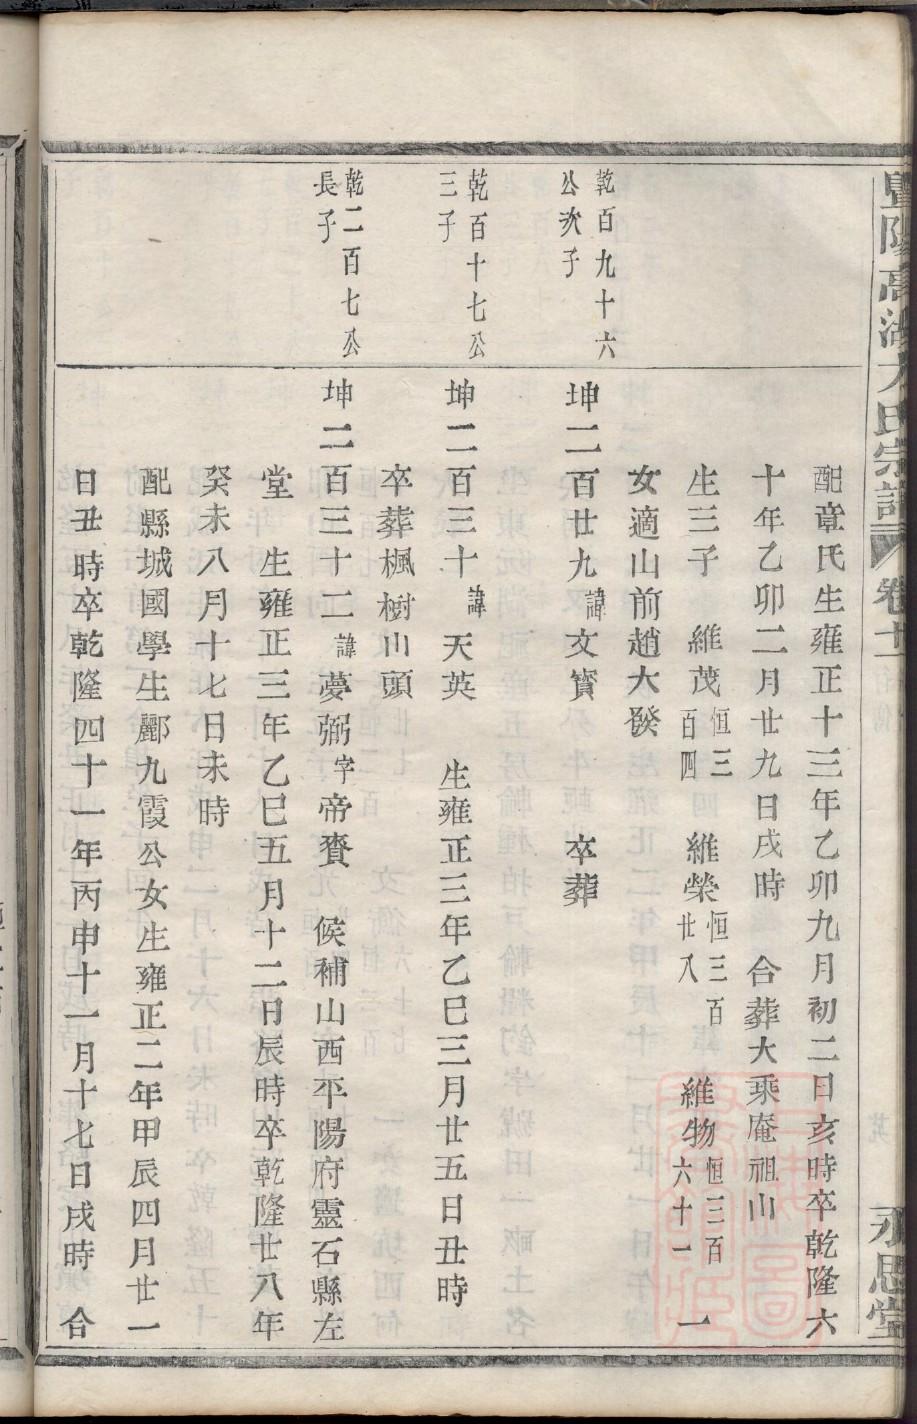 暨陽高湖方氏宗譜 卷十一 永思堂
配章氏生雍正十三年乙卯九月初二日亥時卒乾隆六
十年乙卯二月廿九日戌時 合葬大乘庵祖山
生三子 維茂恒三百四 維榮恒三百廿八 維物恒三百六十一 一
女適山前趙大發
乾百九十六公次子
坤二百廿九諱文寶 卒葬
乾百十七公三子
坤二百三十諱天英 生雍正三年乙巳三月廿五日丑時
卒葬楓樹山頭
乾二百七公長子
坤二百三十二諱夢弼字帝賚 候補山西平陽府靈石縣左
堂 生雍正三年乙巳五月十二日辰時卒乾隆廿八年
癸未八月十七日未時
配縣城國學生酈九霞公女生雍正二年甲辰四月廿一
日丑時卒乾隆四十一年丙申十一月十七日戌時 合